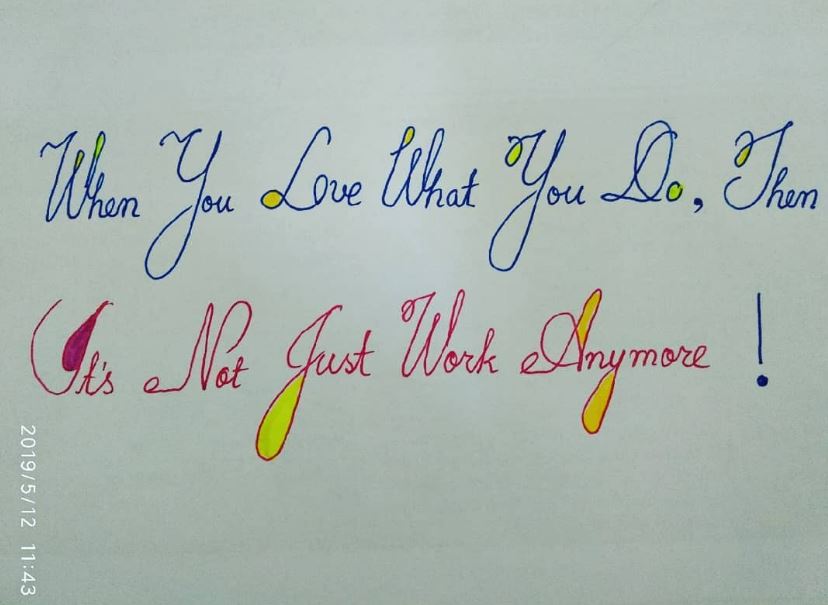 When You Love What You Do, Then
It's Not Just Work Anymore !
2019/5/12 11:43